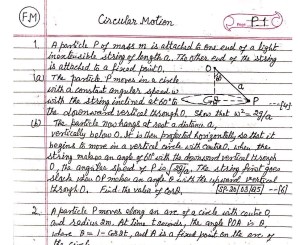 FM
Circular Motion
P-1
1. A particle P of mass m is attached to one end of a light
inextensible string of length a. The other end of the string
is attached to a fixed point O.
(a) The particle P moves in a circle
with a constant angular speed ω
with the string inclined at 60° to
the downward vertical through O. Show that ω² = 2g/a
(b) The particle now hangs at rest a distance a,
vertically below O. It is then projected horizontally so that it
begins to move in a vertical circle with centre O. When the
string makes an angle of 60° with the downward vertical through
O, the angular speed of P is √2g/a. The string first goes
slack when OP makes an angle θ with the upward vertical
through O. Find the value of cosθ.
2. A particle P moves along an arc of a circle with centre O
and radius 2m. At time t seconds, the angle POA is θ,
where θ = 1 - cos2t, and A is a fixed point on the arc of
the circle